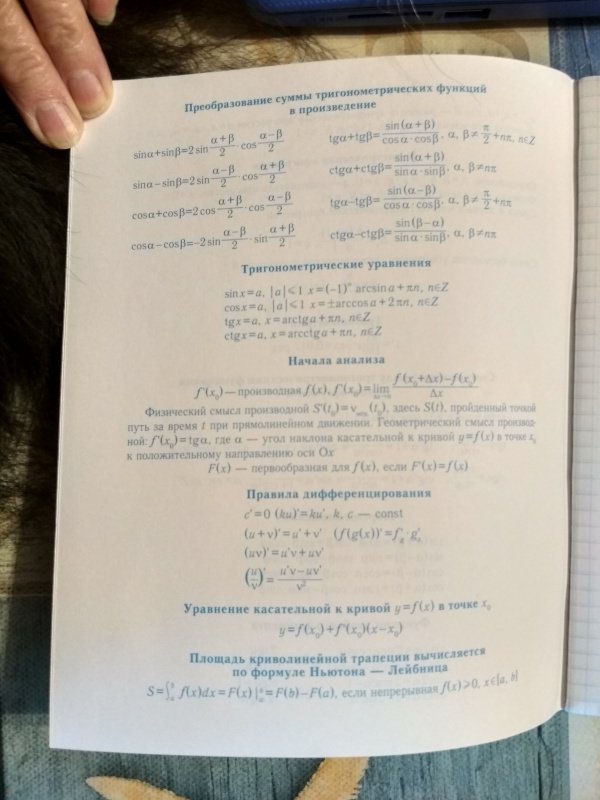 Преобразование суммы тригонометрических функций
в произведение
sinα+sinβ=2sin (α+β)/2 · cos (α−β)/2
tgα+tgβ= sin(α+β)/(cosα·cosβ), α, β≠ π/2 +nπ, n∈Z
sinα−sinβ=2sin (α−β)/2 · cos (α+β)/2
ctgα+ctgβ= sin(α+β)/(sinα·sinβ), α, β≠nπ
cosα+cosβ=2cos (α+β)/2 · cos (α−β)/2
tgα−tgβ= sin(α−β)/(cosα·cosβ), α, β≠ π/2 +nπ
cosα−cosβ=−2sin (α−β)/2 · sin (α+β)/2
ctgα−ctgβ= sin(β−α)/(sinα·sinβ), α, β≠nπ
Тригонометрические уравнения
sinx=a, |a|⩽1 x=(−1)ⁿ arcsina+πn, n∈Z
cosx=a, |a|⩽1 x=±arccosa+2πn, n∈Z
tgx=a, x=arctga+πn, n∈Z
ctgx=a, x=arcctga+πn, n∈Z
Начала анализа
f'(x₀) — производная f(x), f'(x₀)= lim (f(x₀+Δx)−f(x₀))/Δx
Физический смысл производной S'(t₀)=v (t₀), здесь S(t), пройденный точкой
путь за время t при прямолинейном движении. Геометрический смысл производ-
ной: f'(x₀)=tgα, где α — угол наклона касательной к кривой y=f(x) в точке x₀
к положительному направлению оси Ox
F(x) — первообразная для f(x), если F'(x)=f(x)
Правила дифференцирования
c'=0 (ku)'=ku', k, c — const
(u+v)'=u'+v' (f(g(x))'=f'g·g'x
(uv)'=u'v+uv'
(u/v)'= (u'v−uv')/v²
Уравнение касательной к кривой y=f(x) в точке x₀
y=f(x₀)+f'(x₀)(x−x₀)
Площадь криволинейной трапеции вычисляется
по формуле Ньютона — Лейбница
S=∫ₐᵇ f(x)dx=F(x)|ₐᵇ=F(b)−F(a), если непрерывная f(x)⩾0, x∈[a, b]